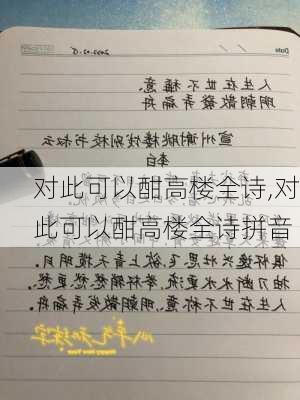 Date
人生在世不称意,
明朝散发弄扁舟
宣州谢朓楼饯别校书叔云
李白
对此可以酣高楼全诗,对
此可以酣高楼全诗拼音
俱怀逸兴壮思飞,欲上青天揽明月。
抽刀断水水更流,举杯消愁愁更愁。
人生在世不称意,明朝散发弄扁舟。
Happy New Year